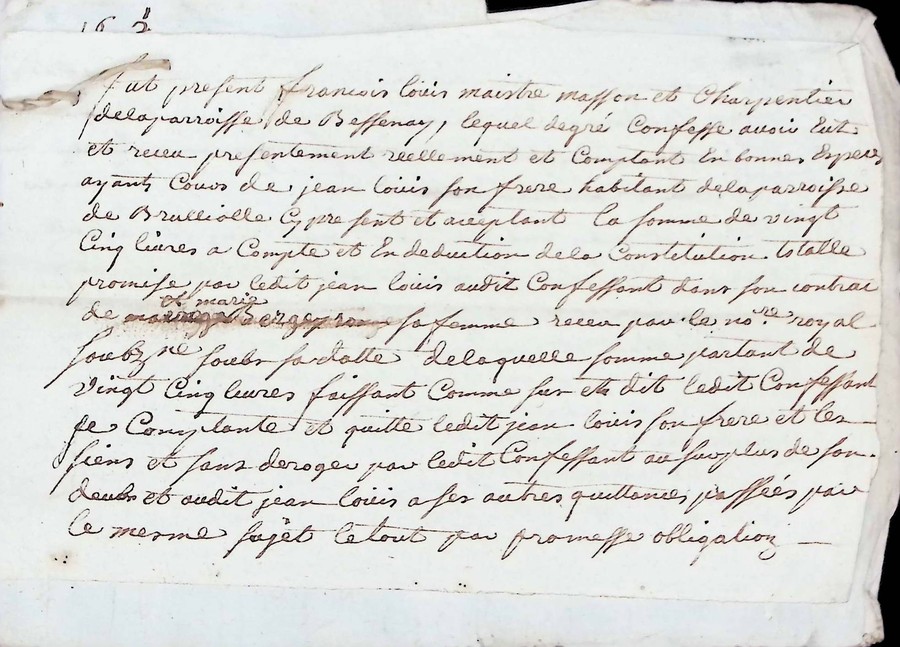 fut present francois louis maistre masson et charpentier
delaparroisse de Bessenay, lequel degré Confesse avoir Eut
et receu presentement reellement et Comptant En bonnes Especes
ayants Cours de jean louis son frere habitant delaparroisse
de Brulliolle Cy present et acceptant la somme de vingt
Cinq livres a Compte et En deduction de la Constitution totalle
promise par ledit jean louis audit Confessant dans son contrat
et marie
de sa femme receu par le no.re royal
soubz.ne soubs sa datte delaquelle somme partant de
vingt Cinq livres faissant Comme sur Est dit ledit Confessant
se Comptante et quitte ledit jean louis son frere et les
siens et sans deroger par ledit Confessant au surplus de son
deubs et audit jean louis a ses autres quittances passées par
le mesme sujet le tout par promesse obligation